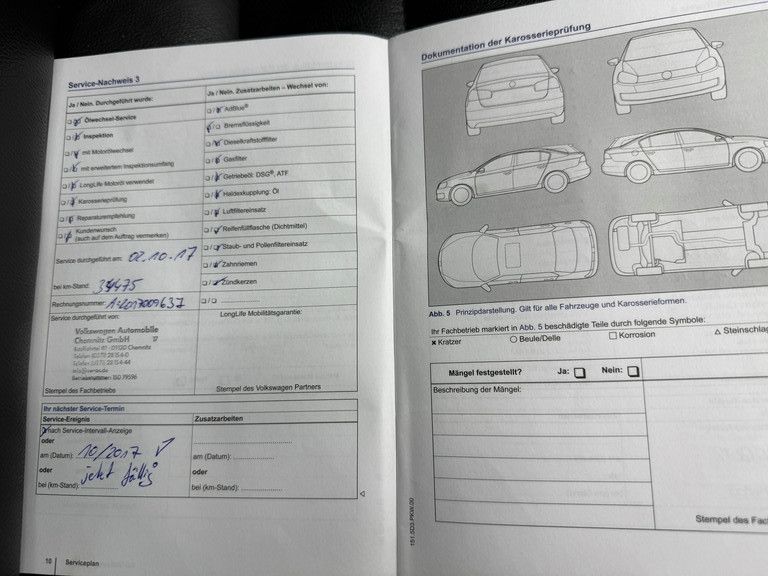 Service-Nachweis 3
Ja / Nein. Durchgeführt wurde:
Ölwechsel-Service
Inspektion
mit Motorölwechsel
mit erweitertem Inspektionsumfang
LongLife Motoröl verwendet
Karosserieprüfung
Reparaturempfehlung
Kundenwunsch
(auch auf dem Auftrag vermerken)
Service durchgeführt am: 02.10.17
bei km-Stand: 34475
Rechnungsnummer:
Service durchgeführt von:
Volkswagen Automobile
Chemnitz GmbH 17
09120 Chemnitz
Stempel des Fachbetriebs
Ja / Nein. Zusatzarbeiten – Wechsel von:
AdBlue®
Bremsflüssigkeit
Dieselkraftstofffilter
Gasfilter
Getriebeöl: DSG®, ATF
Haldexkupplung: Öl
Luftfiltereinsatz
Reifenfüllflasche (Dichtmittel)
Staub- und Pollenfiltereinsatz
Zahnriemen
Zündkerzen
LongLife Mobilitätsgarantie:
Stempel des Volkswagen Partners
Ihr nächster Service-Termin
Service-Ereignis
nach Service-Intervall-Anzeige
oder
am (Datum): 10/2017
oder
jetzt fällig
bei (km-Stand):
Zusatzarbeiten
am (Datum):
oder
bei (km-Stand):
10 Serviceplan
Dokumentation der Karosserieprüfung
Abb. 5 Prinzipdarstellung. Gilt für alle Fahrzeuge und Karosserieformen.
Ihr Fachbetrieb markiert in Abb. 5 beschädigte Teile durch folgende Symbole:
× Kratzer ○ Beule/Delle □ Korrosion △ Steinschlag
Mängel festgestellt? Ja: □ Nein: □
Beschreibung der Mängel:
Stempel des Fac
151.5D3.PKW.00